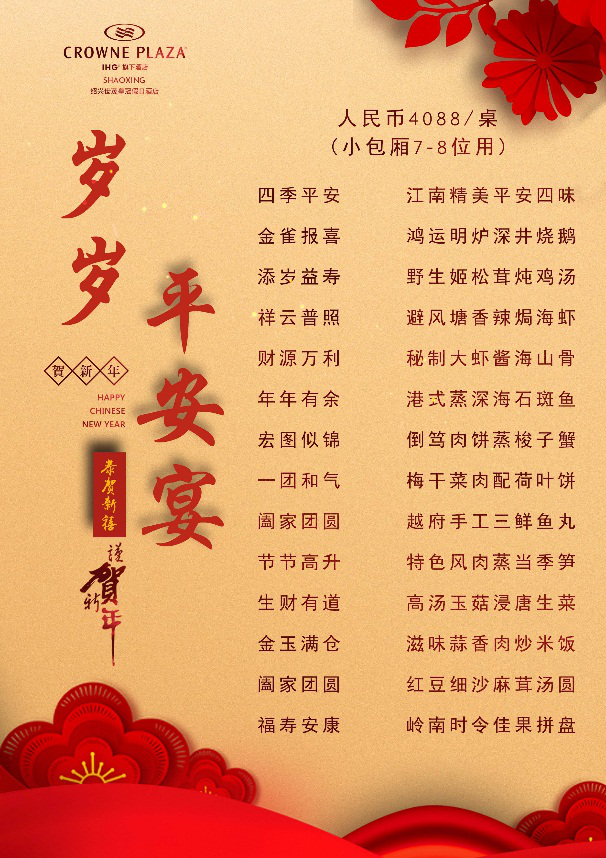 CROWNE PLAZA
IHG® 旗下酒店
SHAOXING
绍兴世茂皇冠假日酒店
岁岁
平安宴
賀新年
HAPPY
CHINESE
NEW YEAR
恭賀新禧
謹
賀
新
年
人民币4088/桌
（小包厢7-8位用）
四季平安 江南精美平安四味
金雀报喜 鸿运明炉深井烧鹅
添岁益寿 野生姬松茸炖鸡汤
祥云普照 避风塘香辣焗海虾
财源万利 秘制大虾酱海山骨
年年有余 港式蒸深海石斑鱼
宏图似锦 倒笃肉饼蒸梭子蟹
一团和气 梅干菜肉配荷叶饼
阖家团圆 越府手工三鲜鱼丸
节节高升 特色风肉蒸当季笋
生财有道 高汤玉菇浸唐生菜
金玉满仓 滋味蒜香肉炒米饭
阖家团圆 红豆细沙麻茸汤圆
福寿安康 岭南时令佳果拼盘